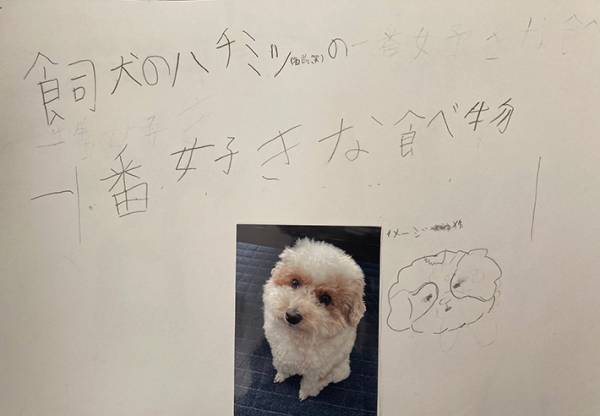 飼犬のハチミツ の一番好きな食
一番好き
一番好きな食べ物
イメージ